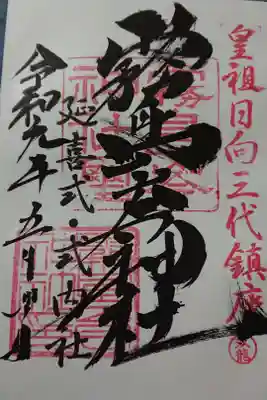 皇祖日向三代鎮座
霧島岑神社
延喜式・式内社
令和元年五月